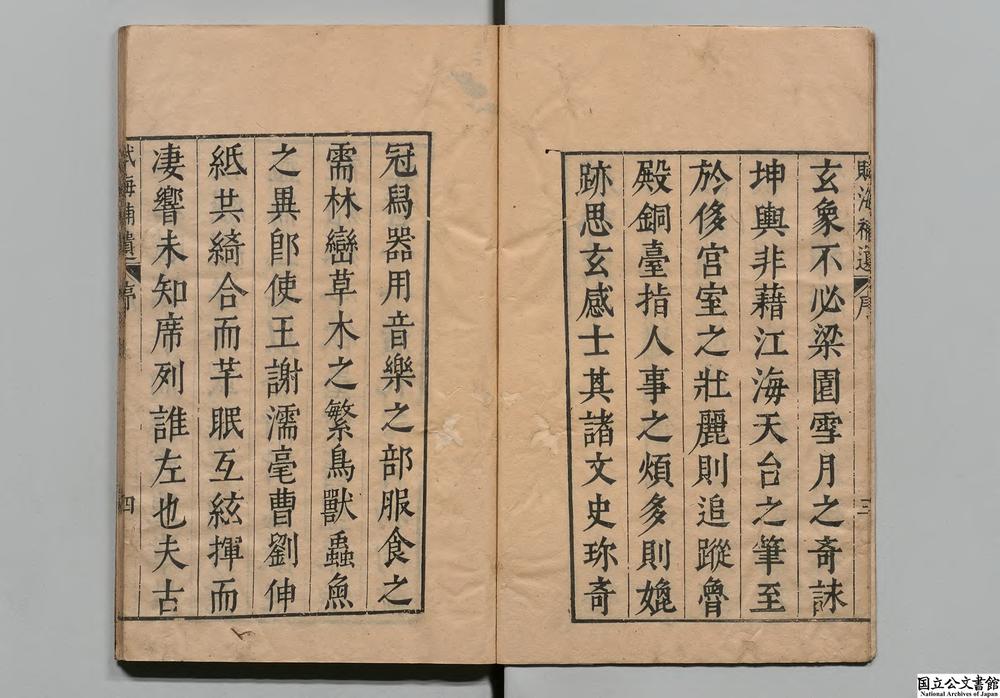 賦海補遺 序 三
玄象不必梁園雪月之奇詠
坤輿非藉江海天台之筆至
於侈宮室之壯麗則追蹤魯
殿銅臺指人事之煩多則媲
跡思玄感士其諸文史珎奇
冠舄器用音樂之部服食之
需林巒草木之繁鳥獸蟲魚
之異卽使王謝濡毫曹劉伸
紙共綺合而芊眠互絃揮而
凄響未知席列誰左也夫古
賦海補遺 序 四
国立公文書館
National Archives of Japan